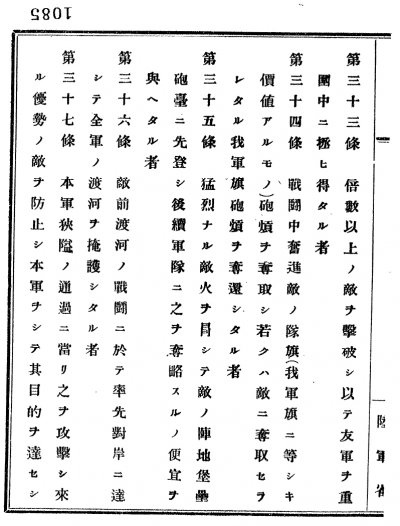 1085
陸軍省
第三十三條 倍數以上ノ敵ヲ擊破シ以テ友軍ヲ重
圍中ニ極ヒ得タル者
第三十四條 戰鬪中奮進敵ノ隊旗(我軍旗ニ等シキ
價値アルモノ)砲煩ヲ奪取シ若クハ敵ニ奪取セラ
レタル我軍旗砲煩ヲ奪還シタル者
第三十五條 猛烈ナル敵火ヲ冒シテ敵ノ陣地堡壘
砲臺ニ先登シ後續軍隊ニ之ヲ奪略スルノ便宜ヲ
與ヘタル者
第三十六條 敵前渡河ノ戰鬪ニ於テ率先對岸ニ達
シテ全軍ノ渡河ヲ掩護シタル者
第三十七條 本軍狹隘ノ通過ニ當リ之ヲ攻擊シ來
ル優勢ノ敵ヲ防止シ本軍ヲシテ其目的ヲ達セシ